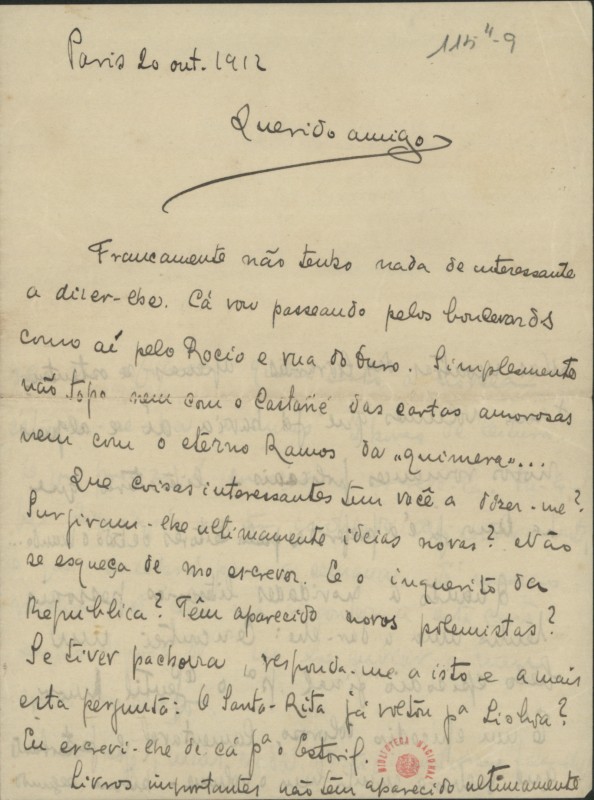 115⁴-9
Paris 20 out. 1912
Querido amigo
Francamente não tenho nada de interessante
a dizer-lhe. Cá vou passeando pelos boulevards
como aí pelo Rocio e rua do Ouro. Simplesmente
não topo nem com o Castañé das cartas amorosas
nem com o eterno Ramos da "Quimera"...
Que coisas interessantes tem você a dizer-me?
Surgiram-lhe ultimamente ideias novas? Não
se esqueça de mo escrever. E o inquerito da
Republica? Têm aparecido novos polemistas?
Se tiver pachorra, responda-me a isto e a mais
esta pergunta: O Santa-Rita já voltou pª Lisboa?
Eu escrevi-lhe de cá pª o Estoril.
Livros importantes não têm aparecido ultimamente
BIBLIOTECA NACIONAL